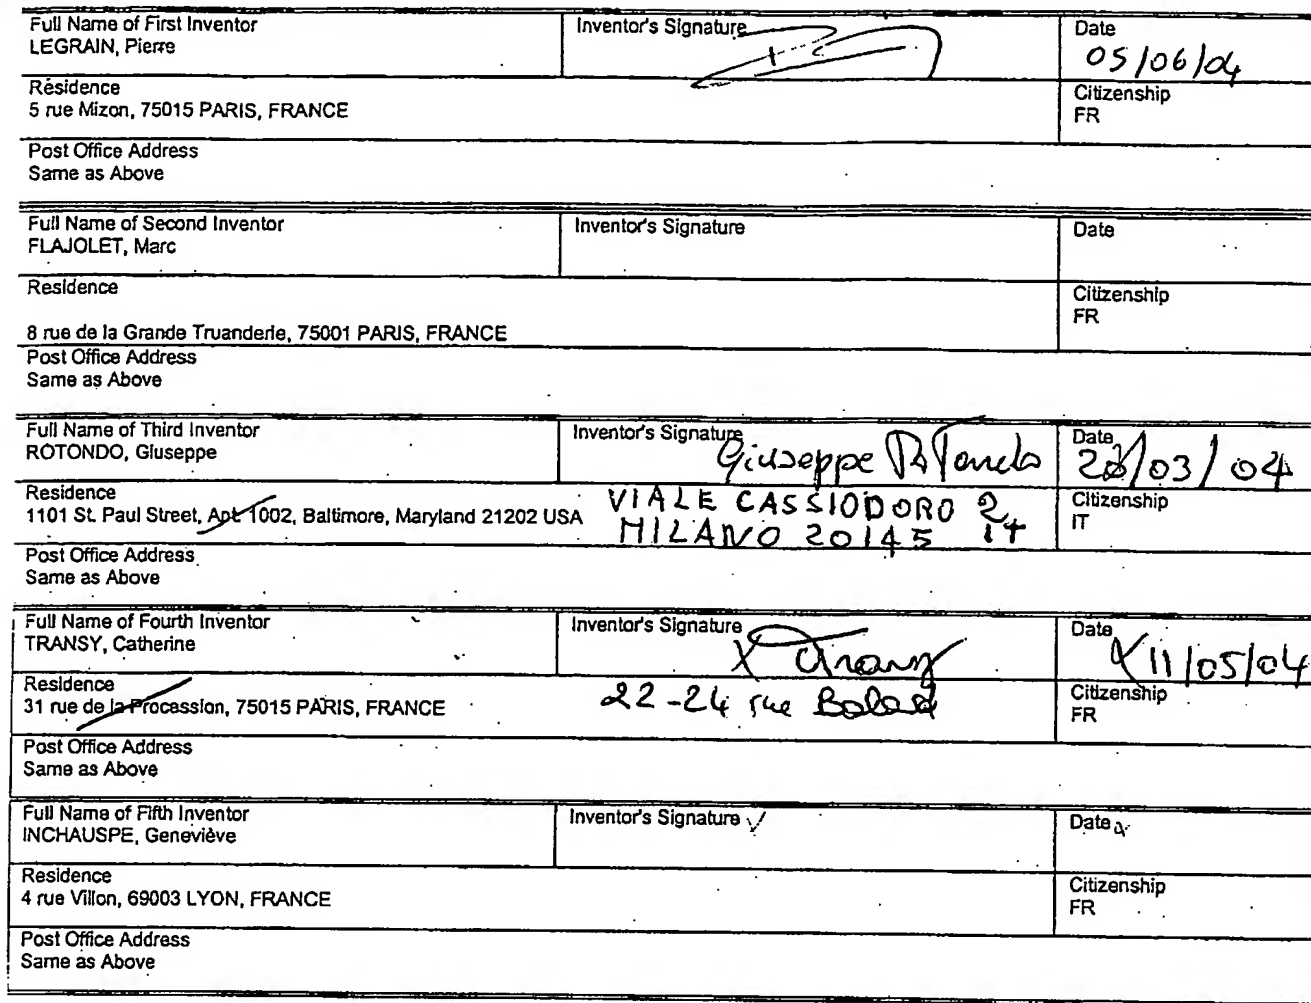 Full Name of First Inventor
LEGRAIN, Pierre
Inventor's Signature
Date
05/06/04
Résidence
5 rue Mizon, 75015 PARIS, FRANCE
Citizenship
FR
Post Office Address
Same as Above
Full Name of Second Inventor
FLAJOLET, Marc
Inventor's Signature
Date
Residence
8 rue de la Grande Truanderie, 75001 PARIS, FRANCE
Citizenship
FR
Post Office Address
Same as Above
Full Name of Third Inventor
ROTONDO, Giuseppe
Inventor's Signature
Giuseppe Rotondo
Date
/03/04
Residence
1101 St. Paul Street, Apt. 1002, Baltimore, Maryland 21202 USA
VIALE CASSIODORO 2
MILANO 20145 IT
Citizenship
IT
Post Office Address
Same as Above
Full Name of Fourth Inventor
TRANSY, Catherine
Inventor's Signature
X Transy
Date
X 11/05/04
Residence
31 rue de la Procession, 75015 PARIS, FRANCE
22-24 rue Balard
Citizenship
FR
Post Office Address
Same as Above
Full Name of Fifth Inventor
INCHAUSPE, Geneviève
Inventor's Signature
Date
Residence
4 rue Villon, 69003 LYON, FRANCE
Citizenship
FR
Post Office Address
Same as Above